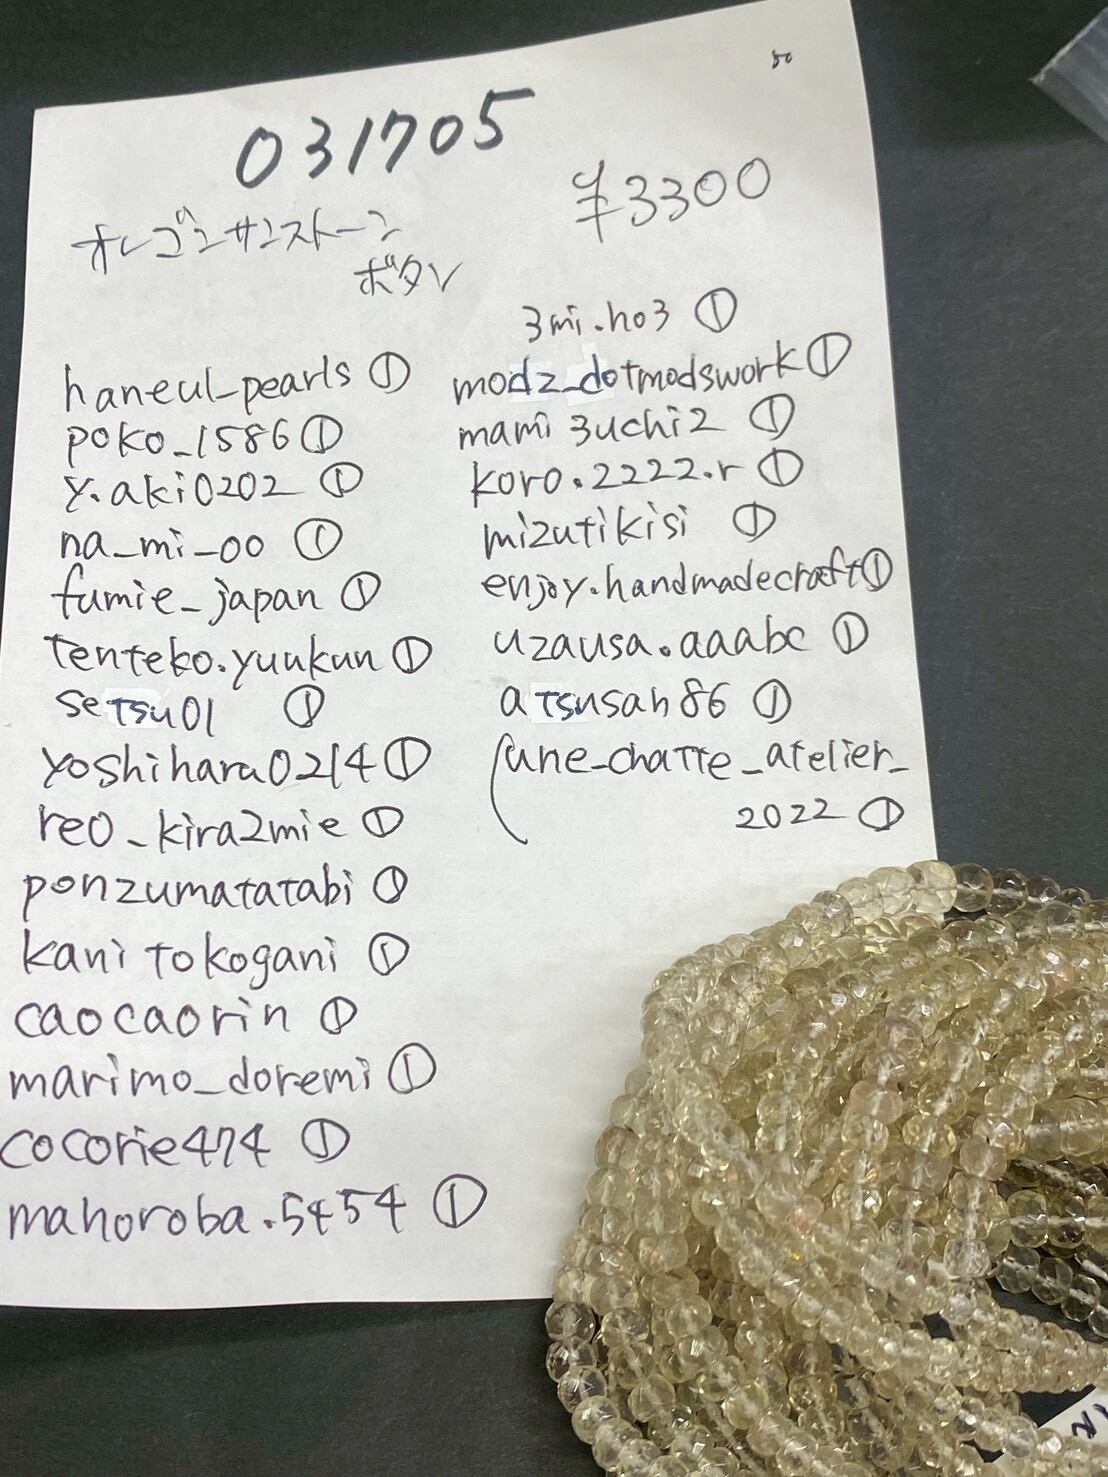 031705
¥3300
オレゴンサンストーン
ボタン
haneul_pearls ①
poko_1586 ①
y.aki0202 ①
na_mi_oo ①
fumie_japan ①
tenteko.yuukun ①
setsu01 ①
yoshihara0214 ①
reo_kira2mie ①
ponzumatatabi ①
kanitokogani ①
caocaorin ①
marimo_doremi ①
cocorie474 ①
mahoroba.5454 ①
3mi.ho3 ①
modz_dotmodswork ①
mami3uchi2 ①
koro.2222.r ①
mizutikisi ①
enjoy.handmadecraft ①
uzausa.aaabc ①
atsusan86 ①
une_chatte_atelier_
2022 ①